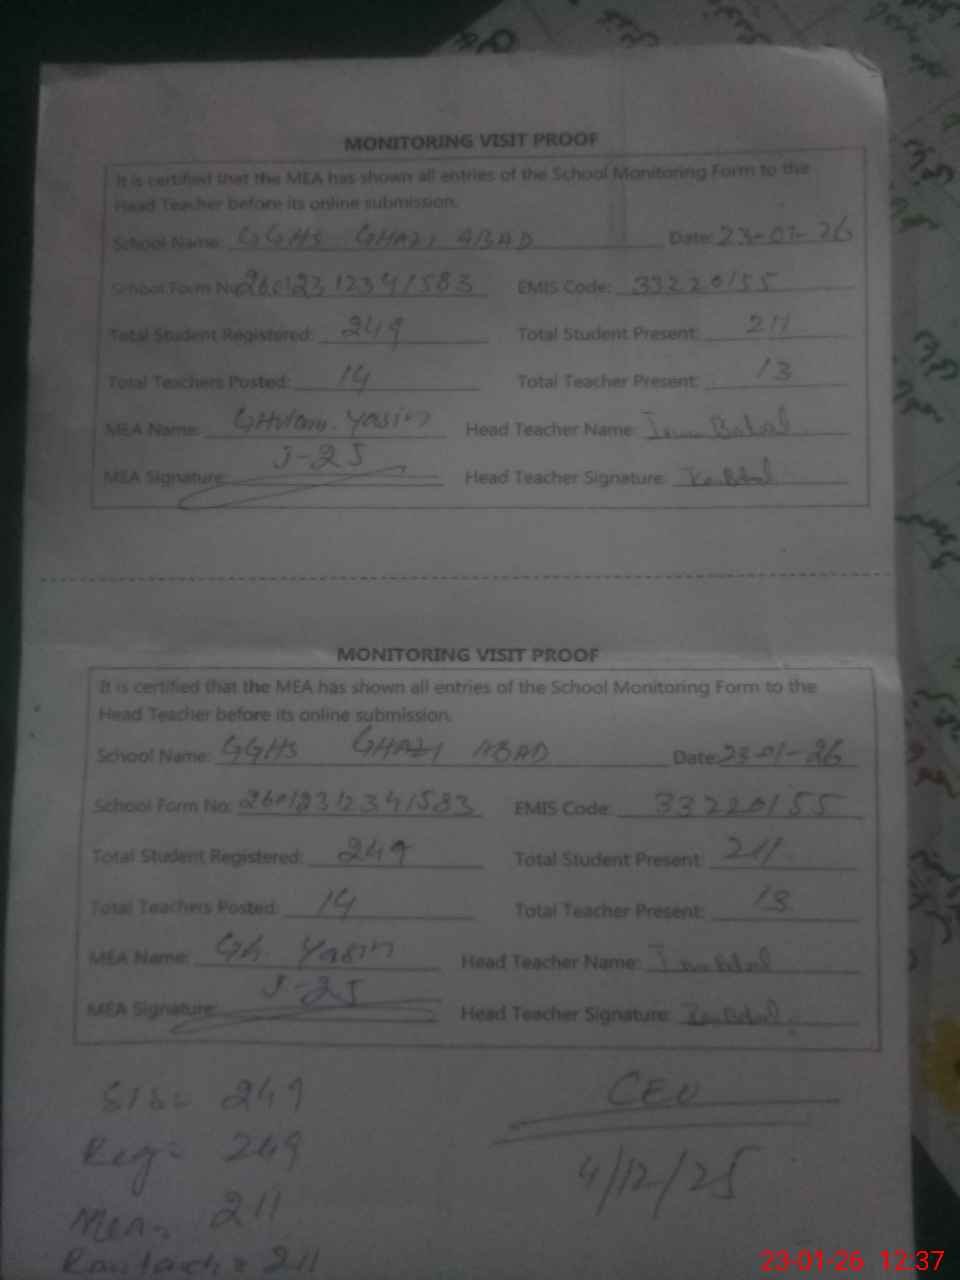 MONITORING VISIT PROOF
It is certified that the MEA has shown all entries of the School Monitoring Form to the
Head Teacher before its online submission.
School Name: GGHS GHAZI ABAD Date: 23-01-26
School Form No: 26012312341583 EMIS Code: 33220155
Total Student Registered: 249 Total Student Present: 211
Total Teachers Posted: 14 Total Teacher Present: 13
MEA Name: GHulam Yasin Head Teacher Name:
MEA Signature: J-25 Head Teacher Signature:
MONITORING VISIT PROOF
It is certified that the MEA has shown all entries of the School Monitoring Form to the
Head Teacher before its online submission.
School Name: GGHS GHAZI ABAD Date: 23-01-26
School Form No: 26012312341583 EMIS Code: 33220155
Total Student Registered: 249 Total Student Present: 211
Total Teachers Posted: 14 Total Teacher Present: 13
MEA Name: Gh. Yasin Head Teacher Name:
MEA Signature: J-25 Head Teacher Signature:
SIS= 249 CEO
Reg= 249 4/12/25
Mea= 211
211
23-01-26 12:37